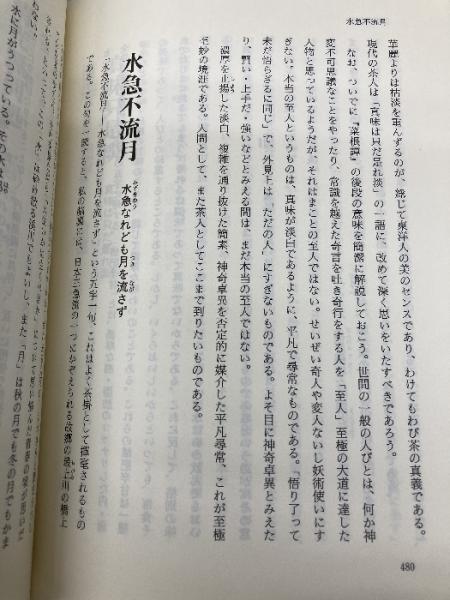 水急不流月
華麗よりは枯淡を重んずるのが、総じて東洋人の美のセンスであり、わけてもわび茶の真義である。
現代の茶人は「真味は只だ是れ淡」の一語に、改めて深く思いをいたすべきであろう。
なお、ついでに『菜根譚』の後段の意味を簡潔に解説しておこう。世間の一般の人びとは、何か神
変不可思議なことをやったり、常識を越えた奇言を吐き奇行をする人を「至人」至極の大道に達した
人物と思っているようだが、それはまことの至人ではない。せいぜい奇人や変人ないし妖術使いにす
ぎない。本当の至人というものは、真味が淡白であるように、平凡で尋常なものである。「悟り了って
未だ悟らざるに同じ」で、外見上は「ただの人」にすぎないものである。よそ目に神奇卓異とみえた
り、賢い・上手だ・強いなどとみえる間は、まだ本当の至人ではない。
濃厚を止揚した淡白、複雑を通り抜けた簡素、神奇卓異を否定的に媒介した平凡尋常、これが至極
至妙の境涯である。人間として、また茶人としてここまで到りたいものである。
水急不流月
水急なれども月を流さず
「水急不流月――水急なれども月を流さず」という五字一句、これはよく茶掛として揮毫されるもの
である。この句を一読すると、私の脳裏には、日本三急流の一つにかぞえられる故郷の最上川の橋上
水に月がうつっている。その水は
480